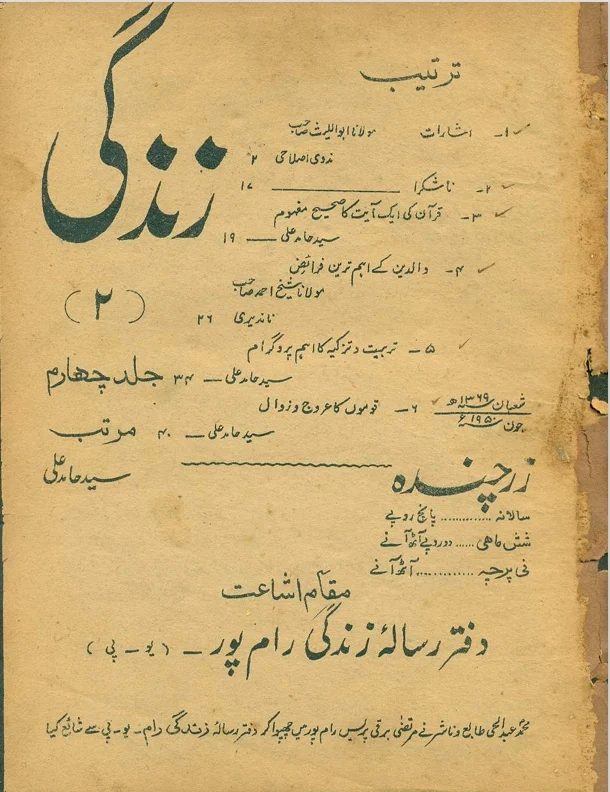 زندگی
(۲)
جلد چہارم
مرتب
سید حامد علی
ترتیب
۱۔ اشارات مولانا ابواللیث صاحب
ندوی اصلاحی ۲
۲۔ ناشکرا ــــــ ۱۷
۳۔ قرآن کی ایک آیت کا صحیح مفہوم
سید حامد علی ــــ ۱۹
۴۔ والدین کے اہم ترین فرائض
مولانا شیخ احمد صاحب
ناندیری ۲۶
۵۔ تربیت و تزکیہ کا اہم پروگرام
سید حامد علی ــــ ۳۴
۶۔ قوموں کا عروج و زوال
سید حامد علی ــــ ۴۰
شعبان ۱۳۶۹ھ
جون ۱۹۵۰ء
زرچندہ
سالانہ ............. پانچ روپے
شش ماہی ...... دو روپے آٹھ آنے
فی پرچہ ............. آٹھ آنے
مقام اشاعت
دفتر رسالۂ زندگی رام پور ۔ (یو ۔ پی)
محمد عبدالحی طابع و ناشر نے مرتضیٰ برقی پریس رام پور میں چھپوا کر دفتر رسالۂ زندگی رام ۔ یو ۔ پی سے شائع کیا